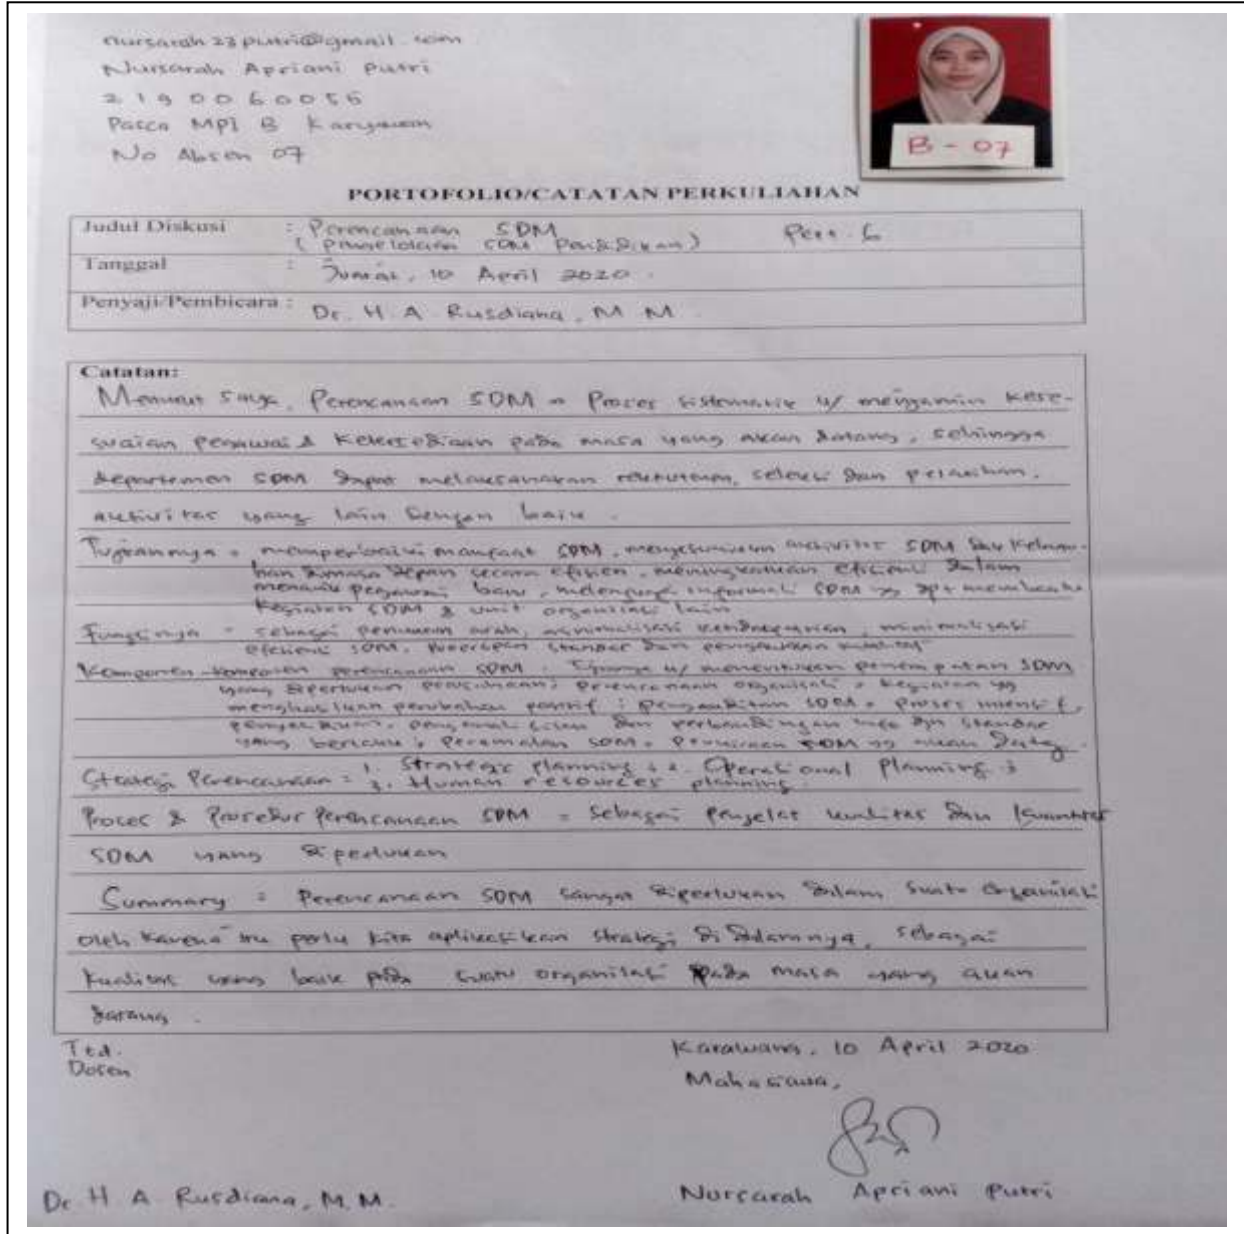 nursarah23putri@gmail.com
Nursarah Apriani Putri
2190060056
Pasca MPI B Karyawan
No Absen 07
B - 07
PORTOFOLIO/CATATAN PERKULIAHAN
Judul Diskusi : Perencanaan SDM Pert. 6
(pengelolaan SDM Pendidikan)
Tanggal : Jum'at, 10 April 2020.
Penyaji/Pembicara : Dr. H. A Rusdiana, M M.
Catatan:
Menurut saya, Perencanaan SDM = Proses sistematis u/ menjamin kese-
suaian pegawai & ketersediaan pada masa yang akan datang, sehingga
departemen SDM dapat melaksanakan rekrutmen, seleksi dan pelatihan,
aktivitas yang lain dengan baik.
Tujuannya = memperbaiki manfaat SDM, menyesuaikan aktivitas SDM dan kebutu-
han dimasa depan secara efisien, meningkatkan efisiensi dalam
menarik pegawai baru, melengkapi informasi SDM yg dpt membantu
kegiatan SDM & unit organisasi lain
Fungsinya = sebagai penentu arah, minimalisasi ketidakpastian, minimalisasi
efisiensi SDM, penerapan standar dan pengawasan kualitas
Komponen-komponen perencanaan SDM : Tujuan u/ menentukan penempatan SDM
yang diperlukan perusahaan; perencanaan organisasi = kegiatan yg
menghasilkan perubahan positif ; pengauditan SDM = proses intensif,
penyelidikan, penganalisisan dan perbandingan info dgn standar
yang berlaku ; peramalan SDM = perkiraan SDM yg akan datag.
Strategi Perencanaan = 1. Strategic planning ; 2. Operational Planning ;
3. Human resources planning.
Proses & Prosedur Perencanaan SDM = sebagai penjelas kualitas dan kuantitas
SDM yang diperlukan
Summary : Perencanaan SDM sangat diperlukan dalam suatu organisasi
oleh karena itu perlu kita aplikasikan strategi di dalamnya, sebagai
kualitas yang baik pada suatu organisasi pada masa yang akan
datang.
Ttd.
Dosen
Karawang, 10 April 2020
Mahasiswa,
Dr. H. A. Rusdiana, M. M.
Nursarah Apriani Putri